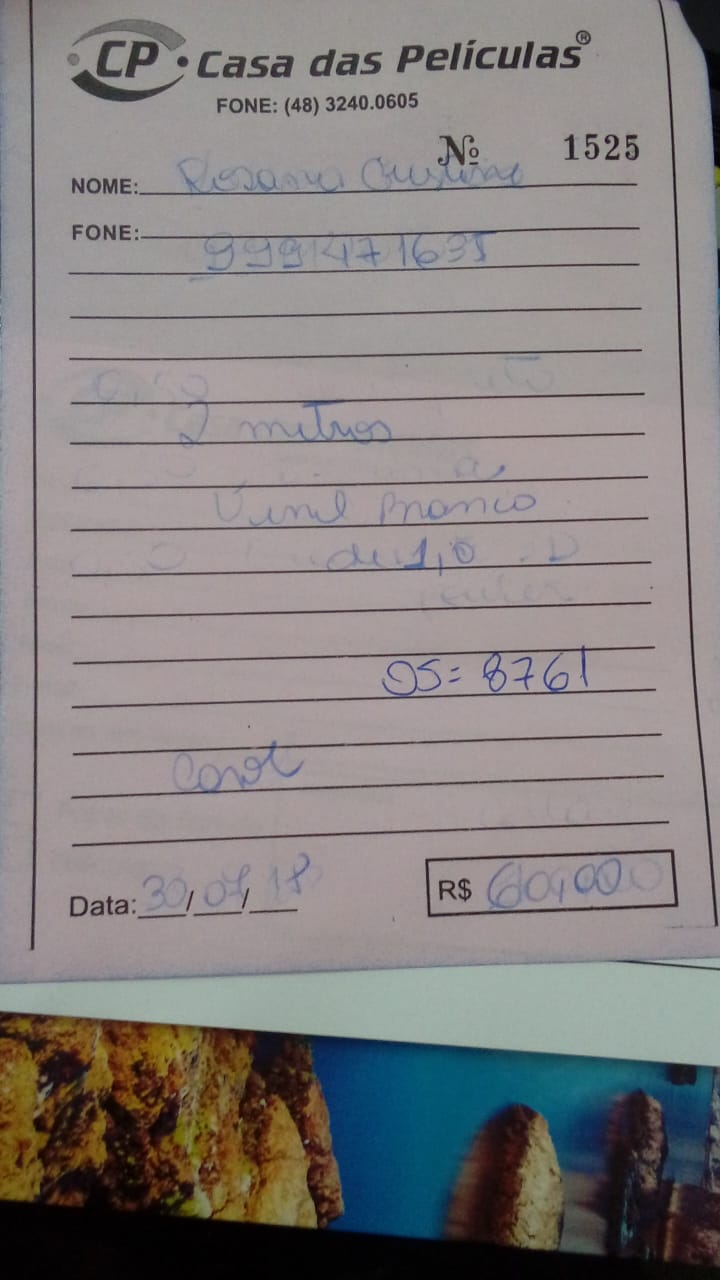 CP • Casa das Películas®
FONE: (48) 3240.0605
Nº 1525
NOME: Rosana Cristine
FONE: 999471635
2 metros
Vinil Branco
de 1,0
OS= 8761
Data: 30/07/18
R$ 60,00